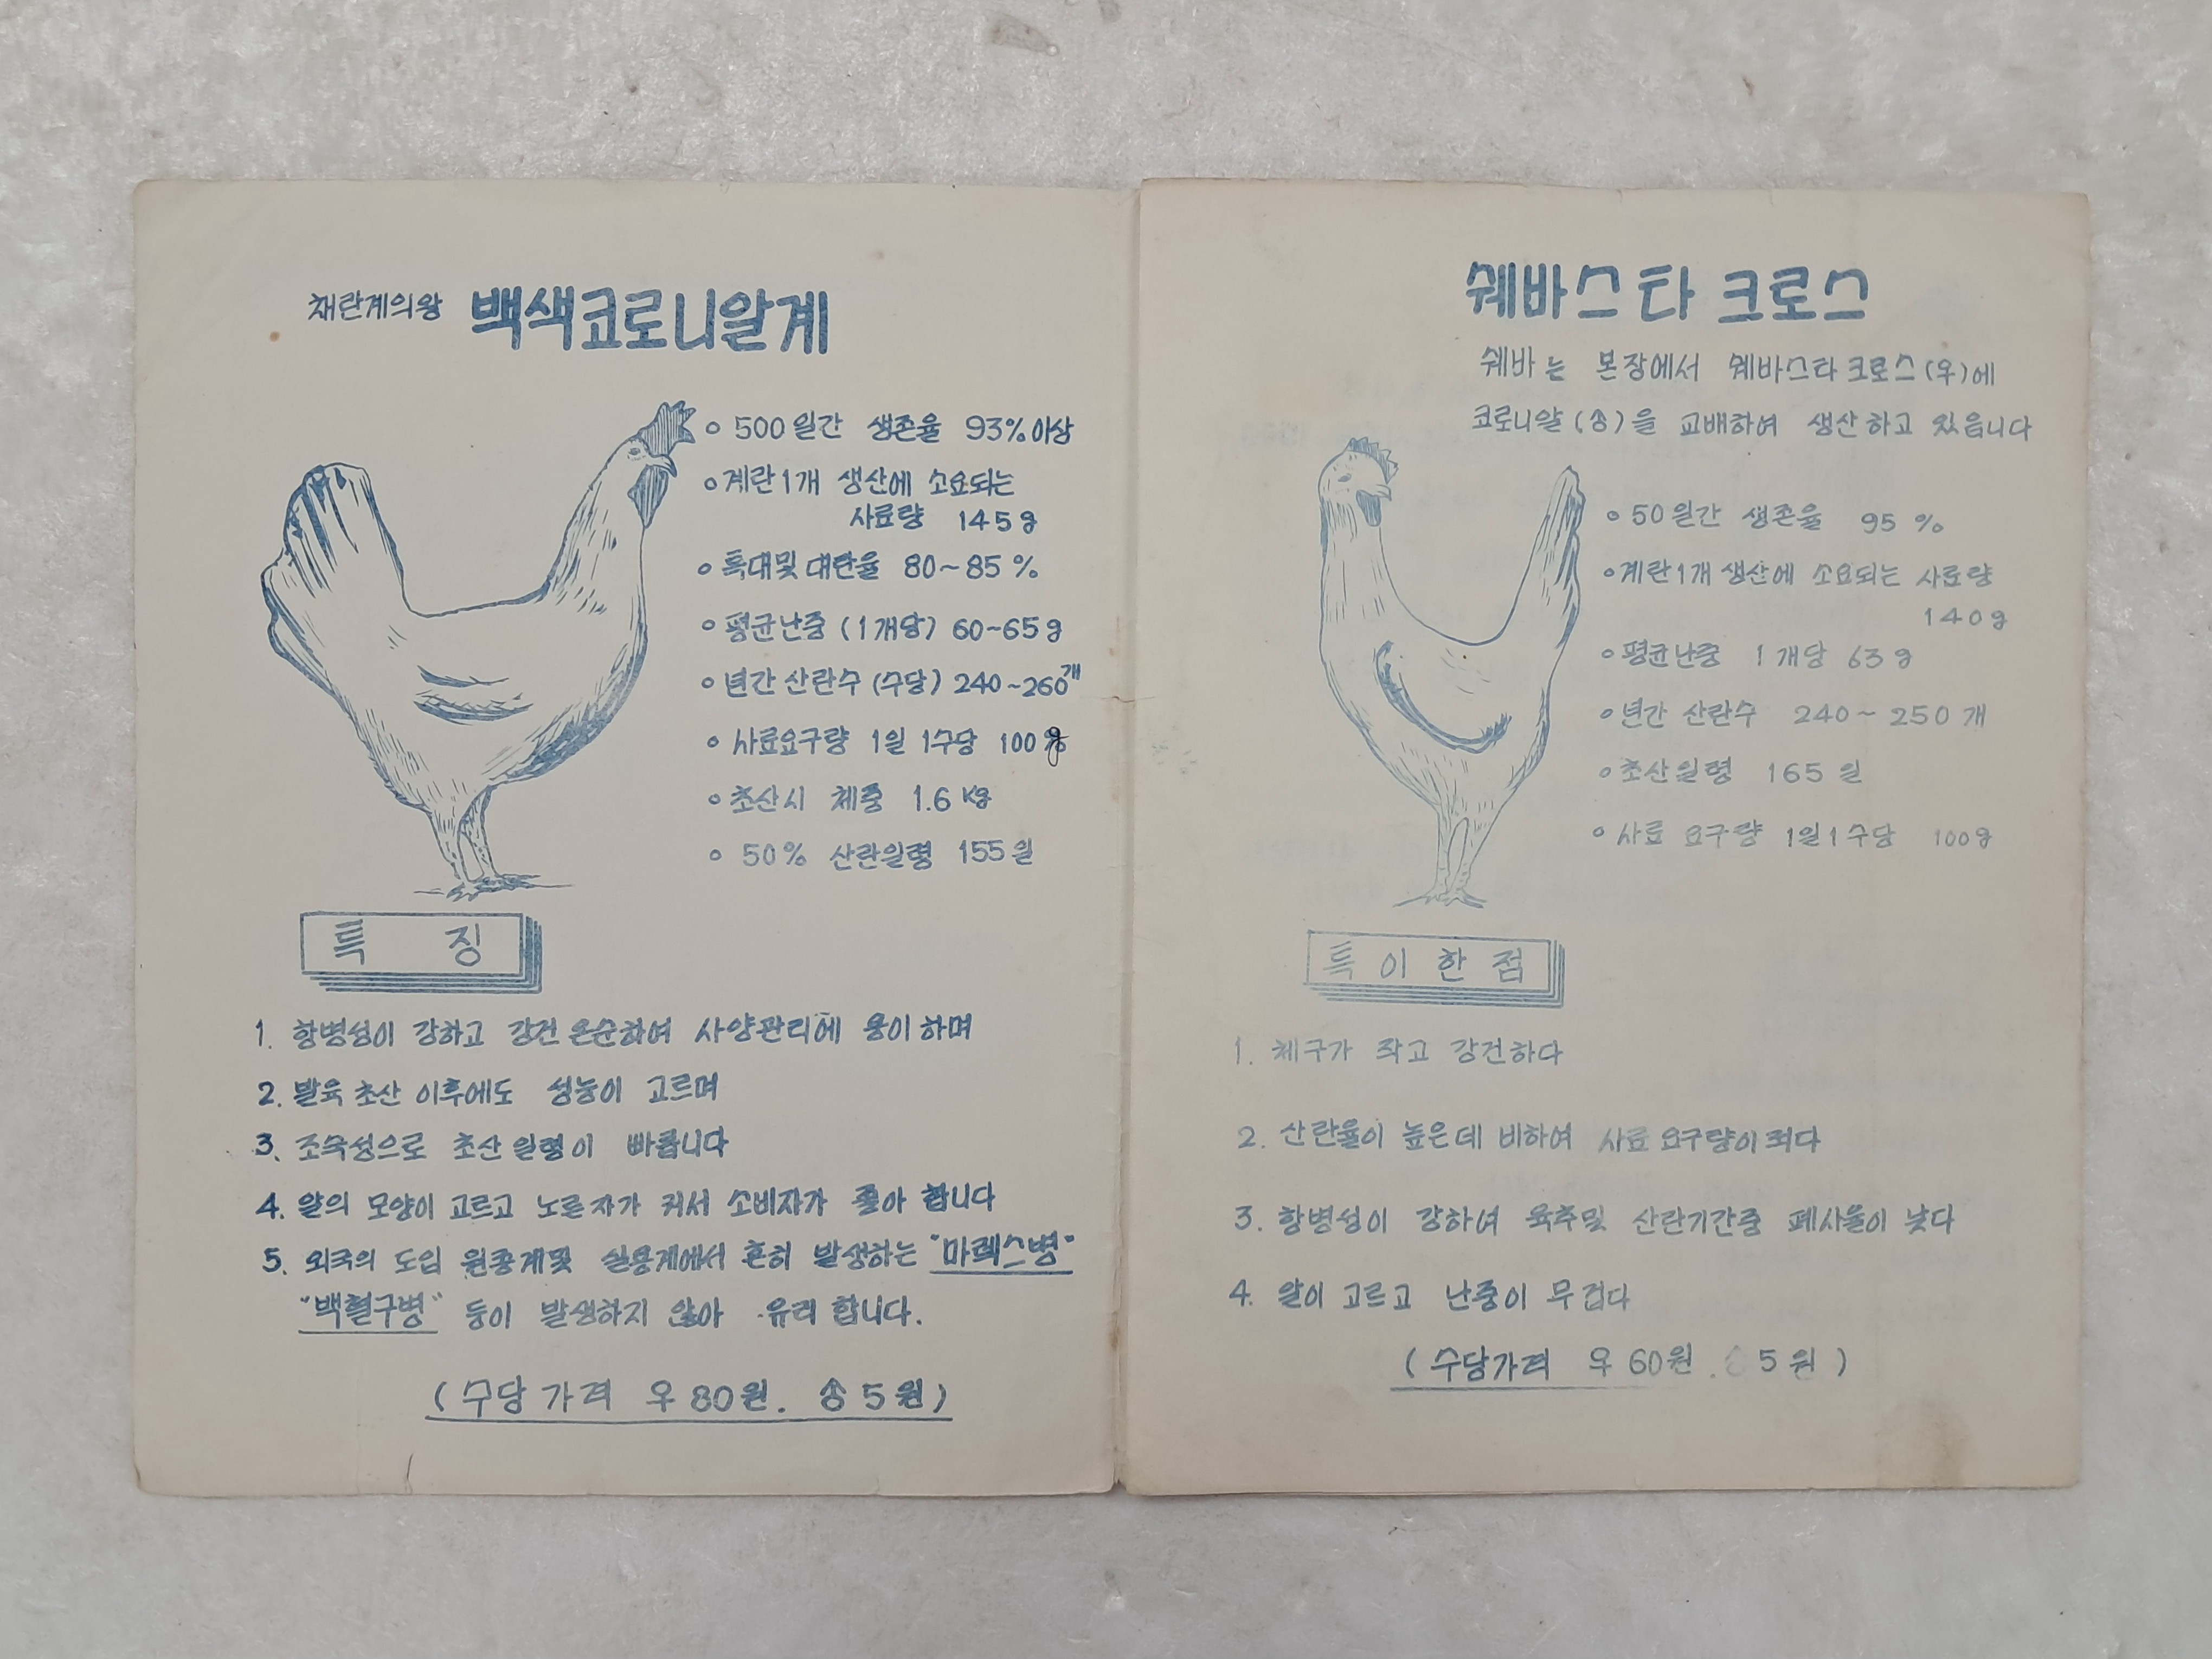 채란계의왕 백색코로니알계
○ 500일간 생존율 93%이상
○ 계란1개 생산에 소요되는
사료량 145g
○ 특대및대란율 80~85%
○ 평균난중 (1개당) 60~65g
○ 년간 산란수 (수당) 240~260개
○ 사료요구량 1일 1수당 100g
○ 초산시 체중 1.6Kg
○ 50% 산란일령 155일
특 징
1. 항병성이 강하고 강건 온순하여 사양관리에 용이하며
2. 발육 초산 이후에도 성능이 고르며
3. 조숙성으로 초산 일령이 빠릅니다
4. 알의 모양이 고르고 노른자가 커서 소비자가 좋아 합니다
5. 외국의 도입 원종계및 실용계에서 흔히 발생하는 "마렉스병"
"백혈구병" 등이 발생하지 않아 유리 합니다.
(수당가격 우 80원. 숑 5원)
쉐바스타 크로스
쉐바는 본장에서 쉐바스타크로스(우)에
코로니알(숑)을 교배하여 생산하고 있읍니다
○ 50일간 생존율 95%
○ 계란1개 생산에 소요되는 사료량
140g
○ 평균난중 1개당 63g
○ 년간 산란수 240~250개
○ 초산일령 165일
○ 사료 요구량 1일1수당 100g
특이한점
1. 체구가 작고 강건하다
2. 산란율이 높은데 비하여 사료요구량이 적다
3. 항병성이 강하여 육추및 산란기간중 폐사율이 낮다
4. 알이 고르고 난중이 무겁다
(수당가격 우 60원. 5원)